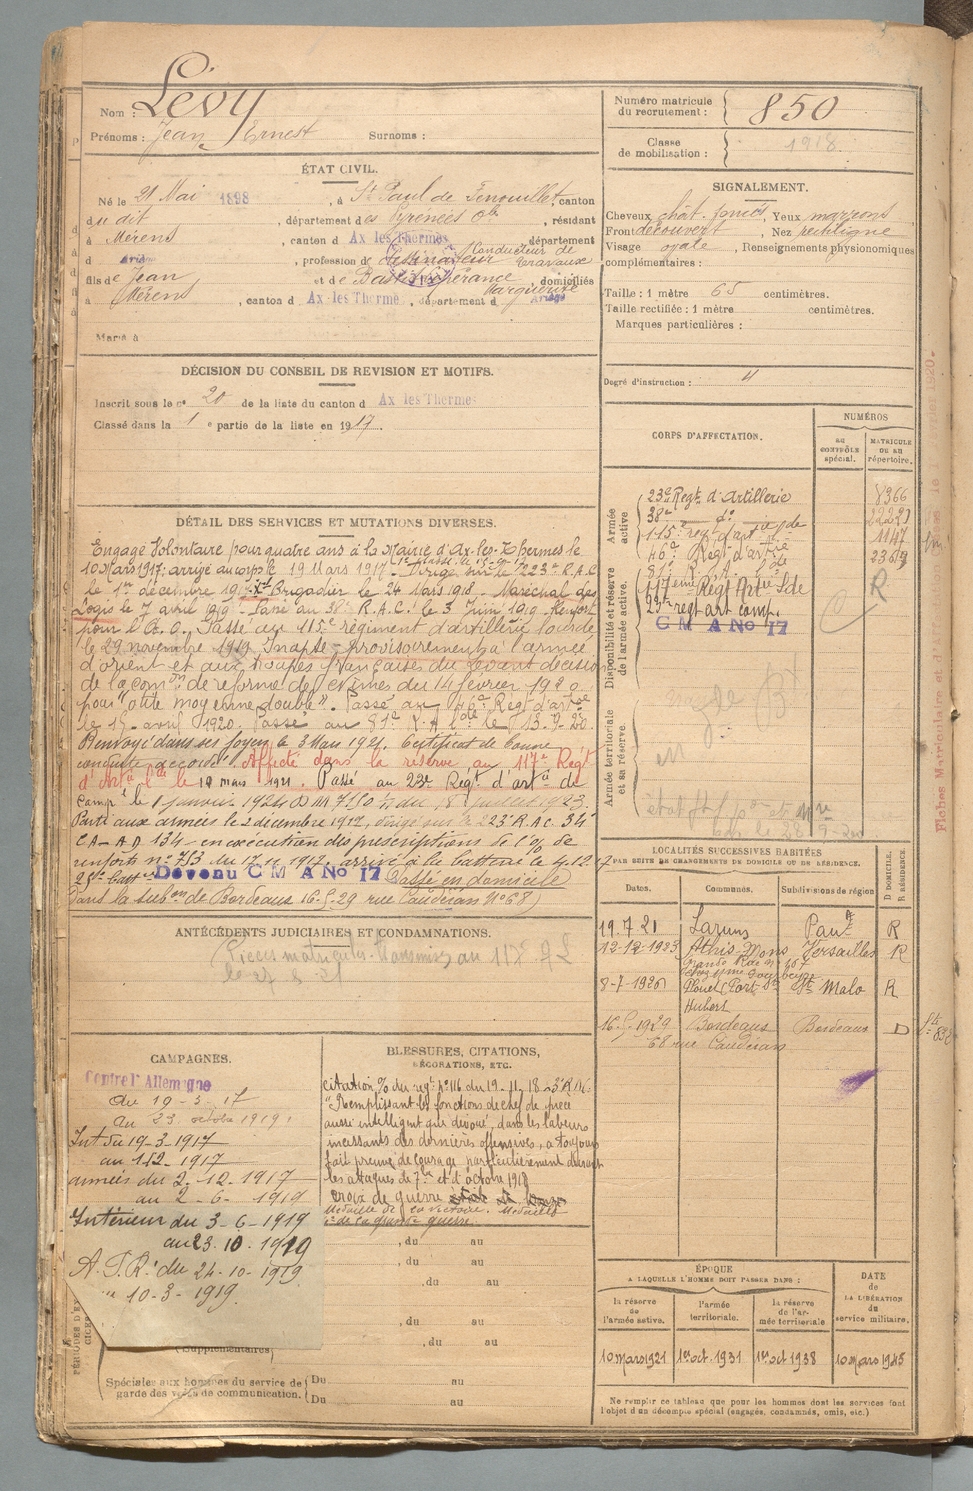 Nom : Lévy
Prénoms : Jean Ernest Surnoms :
Numéro matricule du recrutement : 850
Classe de mobilisation : 1918
ÉTAT CIVIL.
Né le 21 Mai 1898, à St Paul de Fenouillet, canton
du dit, département des Pyrénées Ole, résidant
à Mérens, canton d Ax les Thermes, département
d Ariège, profession de dessinateur Conducteur de travaux
fils de Jean et de Espérance Marguerite, domiciliés
à Mérens, canton d Ax les Thermes, département d Ariège
Marié à
SIGNALEMENT.
Cheveux chât. foncés, Yeux marrons
Front découvert, Nez rectiligne
Visage ovale, Renseignements physionomiques
complémentaires :
Taille : 1 mètre 65 centimètres.
Taille rectifiée : 1 mètre centimètres.
Marques particulières :
Degré d'instruction : 4
DÉCISION DU CONSEIL DE REVISION ET MOTIFS.
Inscrit sous le no 20 de la liste du canton d Ax les Thermes
Classé dans la 1e partie de la liste en 1917.
CORPS D'AFFECTATION.
NUMÉROS
AU CONTRÔLE spécial.
MATRICULE OU AU répertoire.
Armée active
23e Régt d'Artillerie 8366
38e do 22221
115e rég. d'art. lde 1147
46e Régt d'artie
Disponibilité et réserve de l'armée active.
81e R.A. lde
117ème Régt Artie Lde R
23e regt art camp.
C M A No 17
Armée territoriale et sa réserve
DÉTAIL DES SERVICES ET MUTATIONS DIVERSES.
Engagé Volontaire pour quatre ans à la Mairie d'Ax-les-Thermes le
10 Mars 1917; arrivé au corps le 19 Mars 1917. Dirigé sur le 223e R.A.C.
le 1er décembre 1917. Brigadier le 24 Mars 1918. Maréchal des
Logis le 7 avril 1919. Passé au 38e R.A.C. le 3 Juin 1919. Renfort
pour l'A.O. Passé au 115e régiment d'artillerie lourde
le 29 novembre 1919. Inapte provisoirement à l'armée
d'orient et aux troupes françaises du levant décision
de la comon de réforme de Nîmes du 14 février 1920
pour "otite moyenne double". Passé au 46e Reg d'artie
le 15 avril 1920. Passé au 81e R.A. lde le 13.9.20.
Renvoyé dans ses foyers le 3 Mars 1921. Certificat de bonne
conduite accordé. Affecté dans la réserve au 117e Régt
d'Artie lde le 10 mars 1921. Passé au 23e Régt d'artie de
Campe le 1 janvier 1924 du 18 juillet 1923.
Parti aux armées le 2 décembre 1917, dirigé sur le 223e R.A.C. 34e
CA-AD 134 en exécution des prescriptions de
renforts no 753 du 17 11 1917. arrivé à la batterie le 4.12.17
25e batt Devenu C M A No 17 Passé en domicile
dans la subon de Bordeaux 16-5-29 rue Caudéran No 68)
LOCALITÉS SUCCESSIVES HABITÉES
PAR SUITE DE CHANGEMENTS DE DOMICILE OU DE RÉSIDENCE.
Dates. Communes. Subdivisions de région D DOMICILE, R RÉSIDENCE.
19.7.21 Laruns Pau R
12-12-1923 Athis-Mons Versailles R
Grande Rue no 167
8-7-1926 Plouer (Port St Hubert St Malo R
16-5-1929 Bordeaux Bordeaux D
68 rue Caudéran
ANTÉCÉDENTS JUDICIAIRES ET CONDAMNATIONS.
Pièces matricules transmises au 117e AL
le 27 8 21
CAMPAGNES.
Contre l'Allemagne
du 19-3-17
au 23 octobre 1919
Int du 19-3-1917
au 1-12-1917
armées du 2-12-1917
au 2-6-1919
Intérieur du 3-6-1919
au 23.10.1919
A.F.R. du 24-10-1919
10-3-1919.
BLESSURES, CITATIONS, DÉCORATIONS, ETC.
citation % du régt no 116 du 19-11-18
"Remplissant les fonctions de chef de pièce
aussi intelligent que dévoué, dans les labeurs
incessants des dernières offensives, a toujours
fait preuve de courage particulièrement durant
les attaques de 7bre et d'octobre 1918
Croix de guerre
Médaille de la victoire. Médaille
de la grande guerre.
, du au
, du au
, du au
, du au
, du au
(supplémentaires
Spéciales aux hommes du service de garde des voies de communication.
Du au
Du au
ÉPOQUE
A LAQUELLE L'HOMME DOIT PASSER DANS :
la réserve de l'armée active. l'armée territoriale. la réserve de l'armée territoriale
DATE de LA LIBÉRATION du service militaire.
10 mars 1921 1er oct. 1931 1er oct 1938 10 Mars 1945
Ne remplir ce tableau que pour les hommes dont les services font
l'objet d'un décompte spécial (engagés, condamnés, omis, etc.)